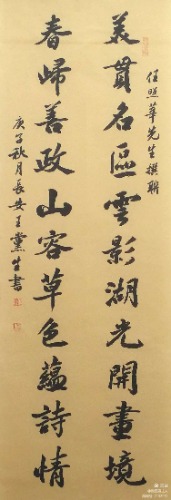 任照華先生撰聯
美貫名區雲影湖光開畫境
春歸善政山容草色蘊詩情
庚子秋月長安王黨生書